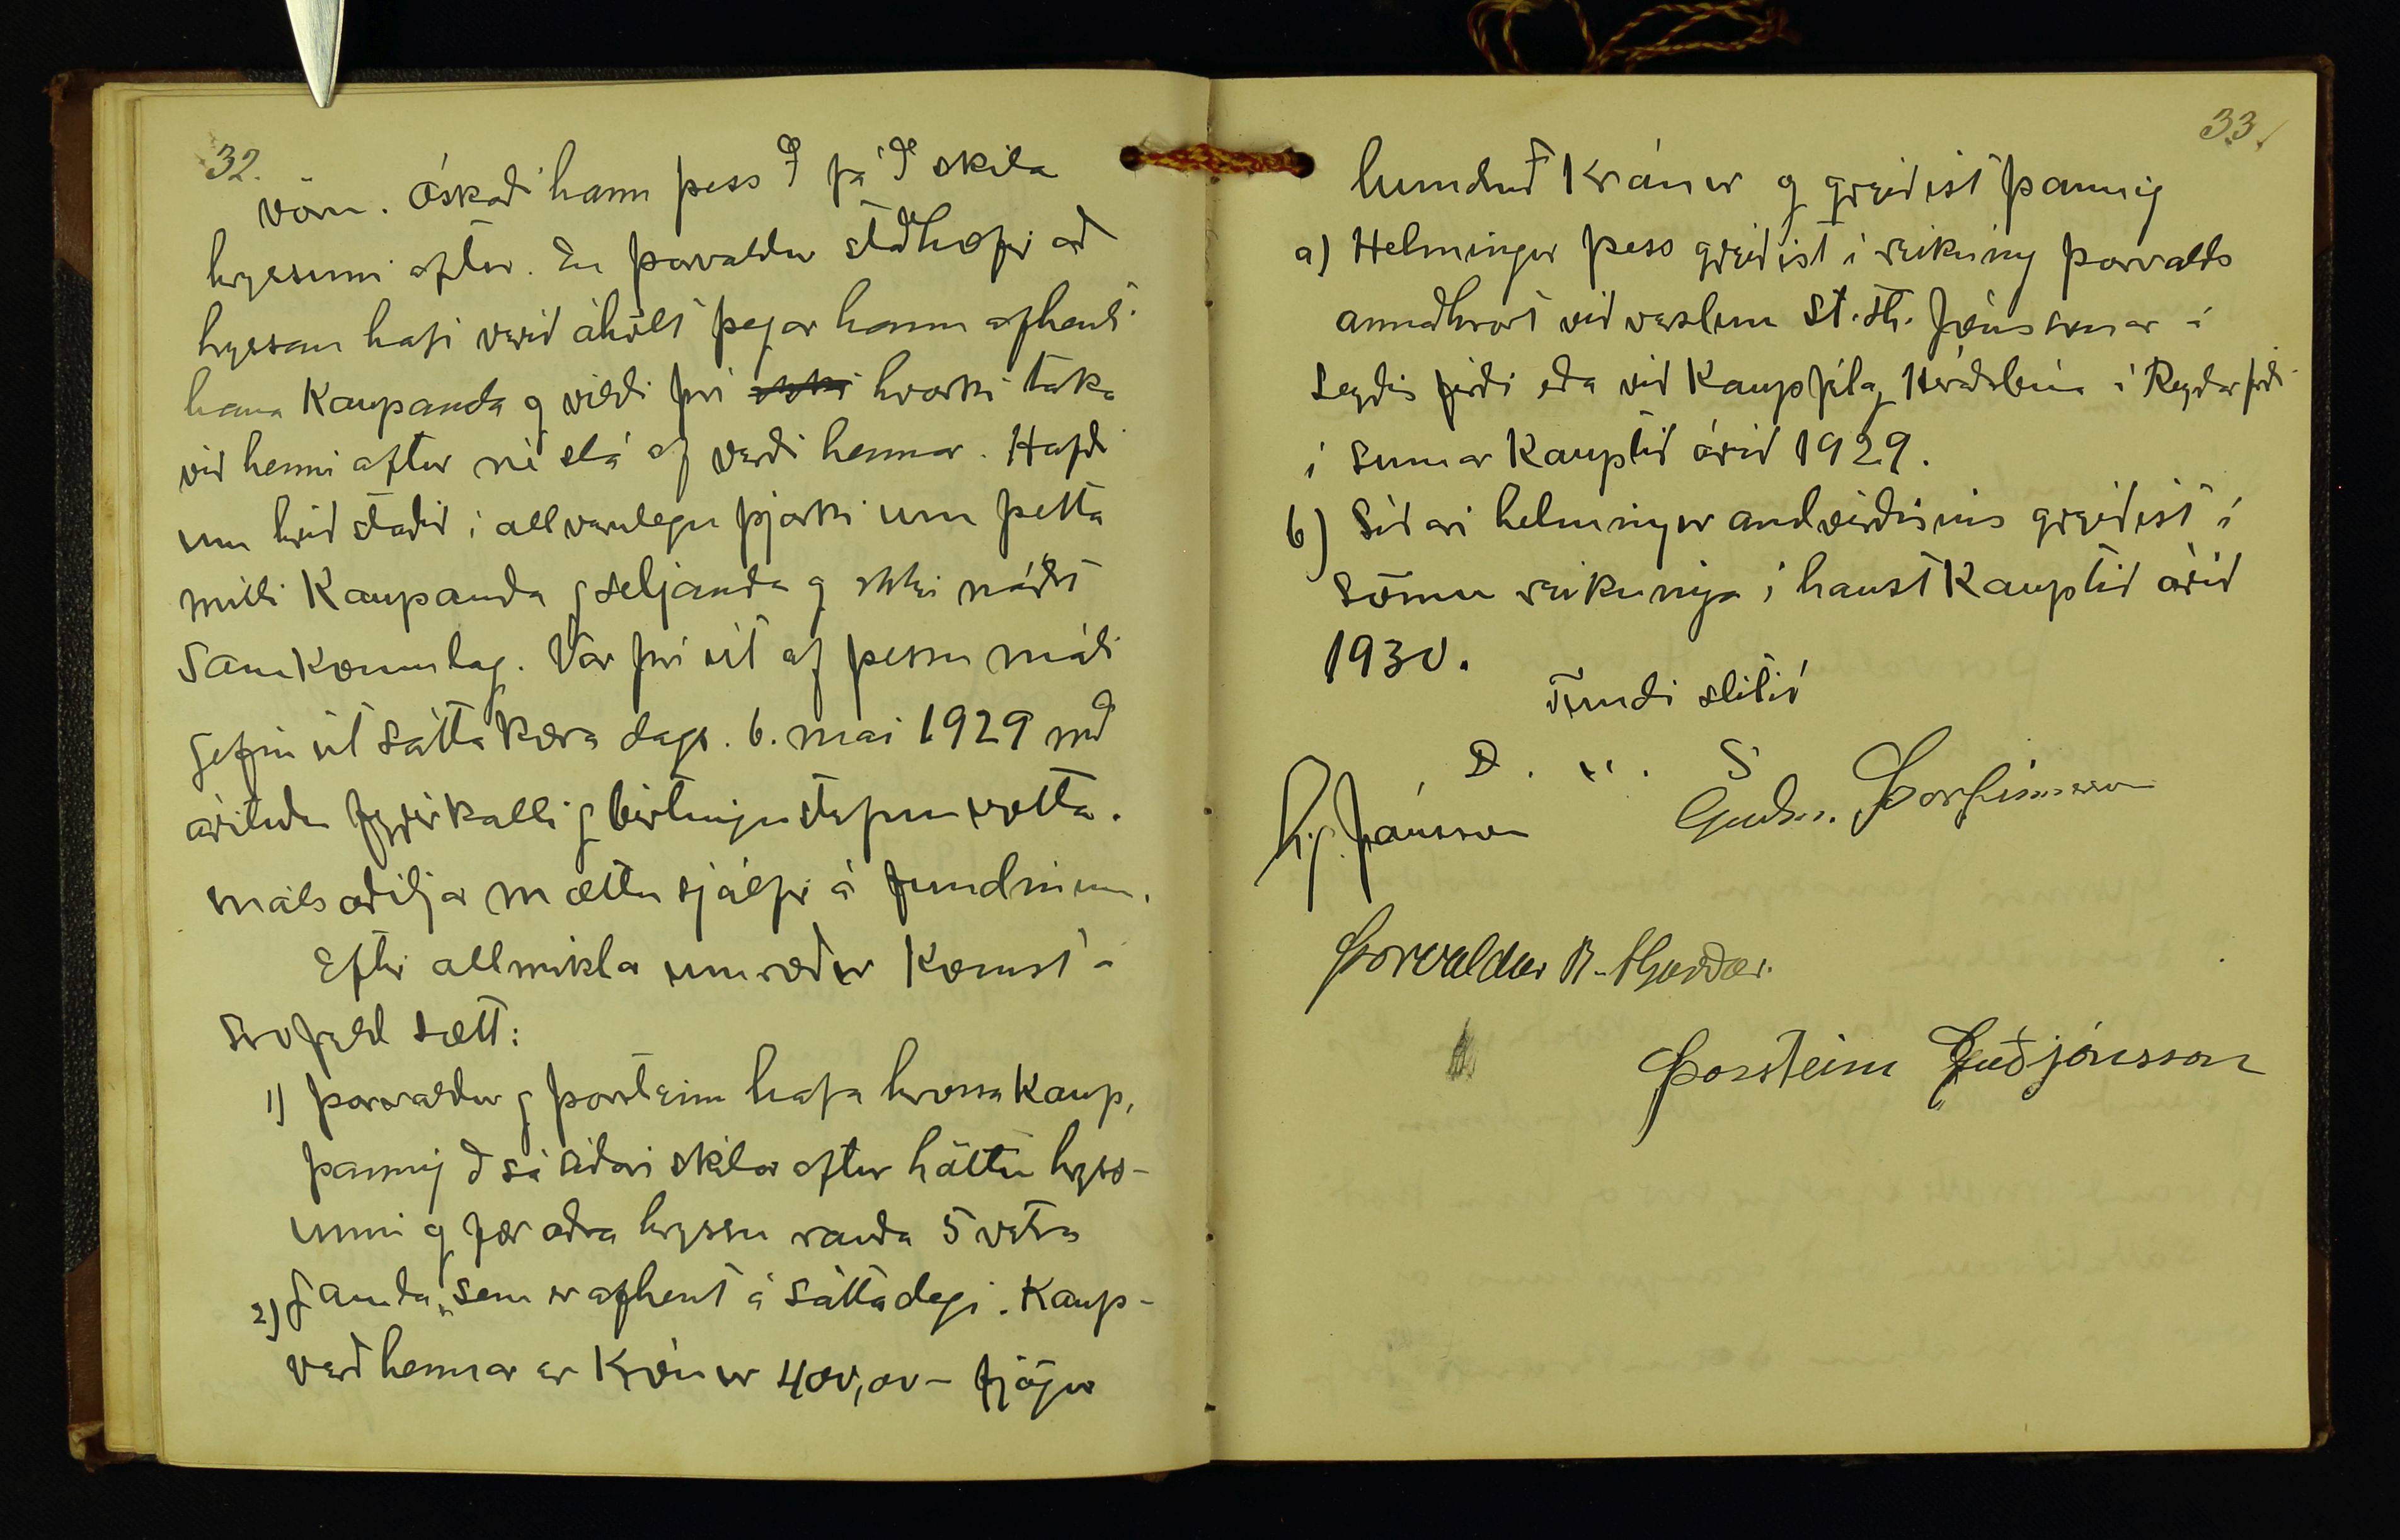 32.
vöru. Óskaði hann þess að fá að skila
hryssunni aftur. En Þorvaldur staðhæfir að
hryssan hafi verið óhölt þegar hann afhenti
hana Kaupanda og vildi því ekki hvorki taka
við henni aftur né slá af verði hennar. Hafði
um hríð staðið í allvarulegu þjarki um þetta
milli Kaupanda og seljanda og ekki náðst
samkomulag. Var því út af þessu máli
gefin út sáttakæra dags. 6. mai 1929 með
árituðu fyrirkalli og birtingu stefnuvotta.
málsaðiljar mættu sjálfir á fundinum.
Eftir allmikla umræður Komst á
svofeld sætt:
1) Þorvaldur og Þorsteinn hafa hrossakaup,
þannig að sá síðari skilar aftur höltu hryss-
unni og fær aðra hryssu rauða 5 vetra
2) gamla, sem er afhent á sáttadegi. Kaup-
verð hennar er Krónur 400,00 - fjögur
33.
hundruð Krónur og greiðist þannig
a) Helmingur þess greiðist í reikning Þorvalds
annaðhvort við verslun St. Th. Jónssonar á
Seyðisfirði eða við Kaupfélag Héraðsbúa í Reyðarfirði
í sumar Kauptíð árið 1929.
b) Síðari helmingur andvirðisins greiðist í
sömu reikninga í haust Kauptíð árið
1930.
Fundi slitið
D. u. S
Guðm. Þorfinnsson
Ing. Jónsson
Þorvaldur B. Hjarðar.
Þorsteinn Guðjónsson